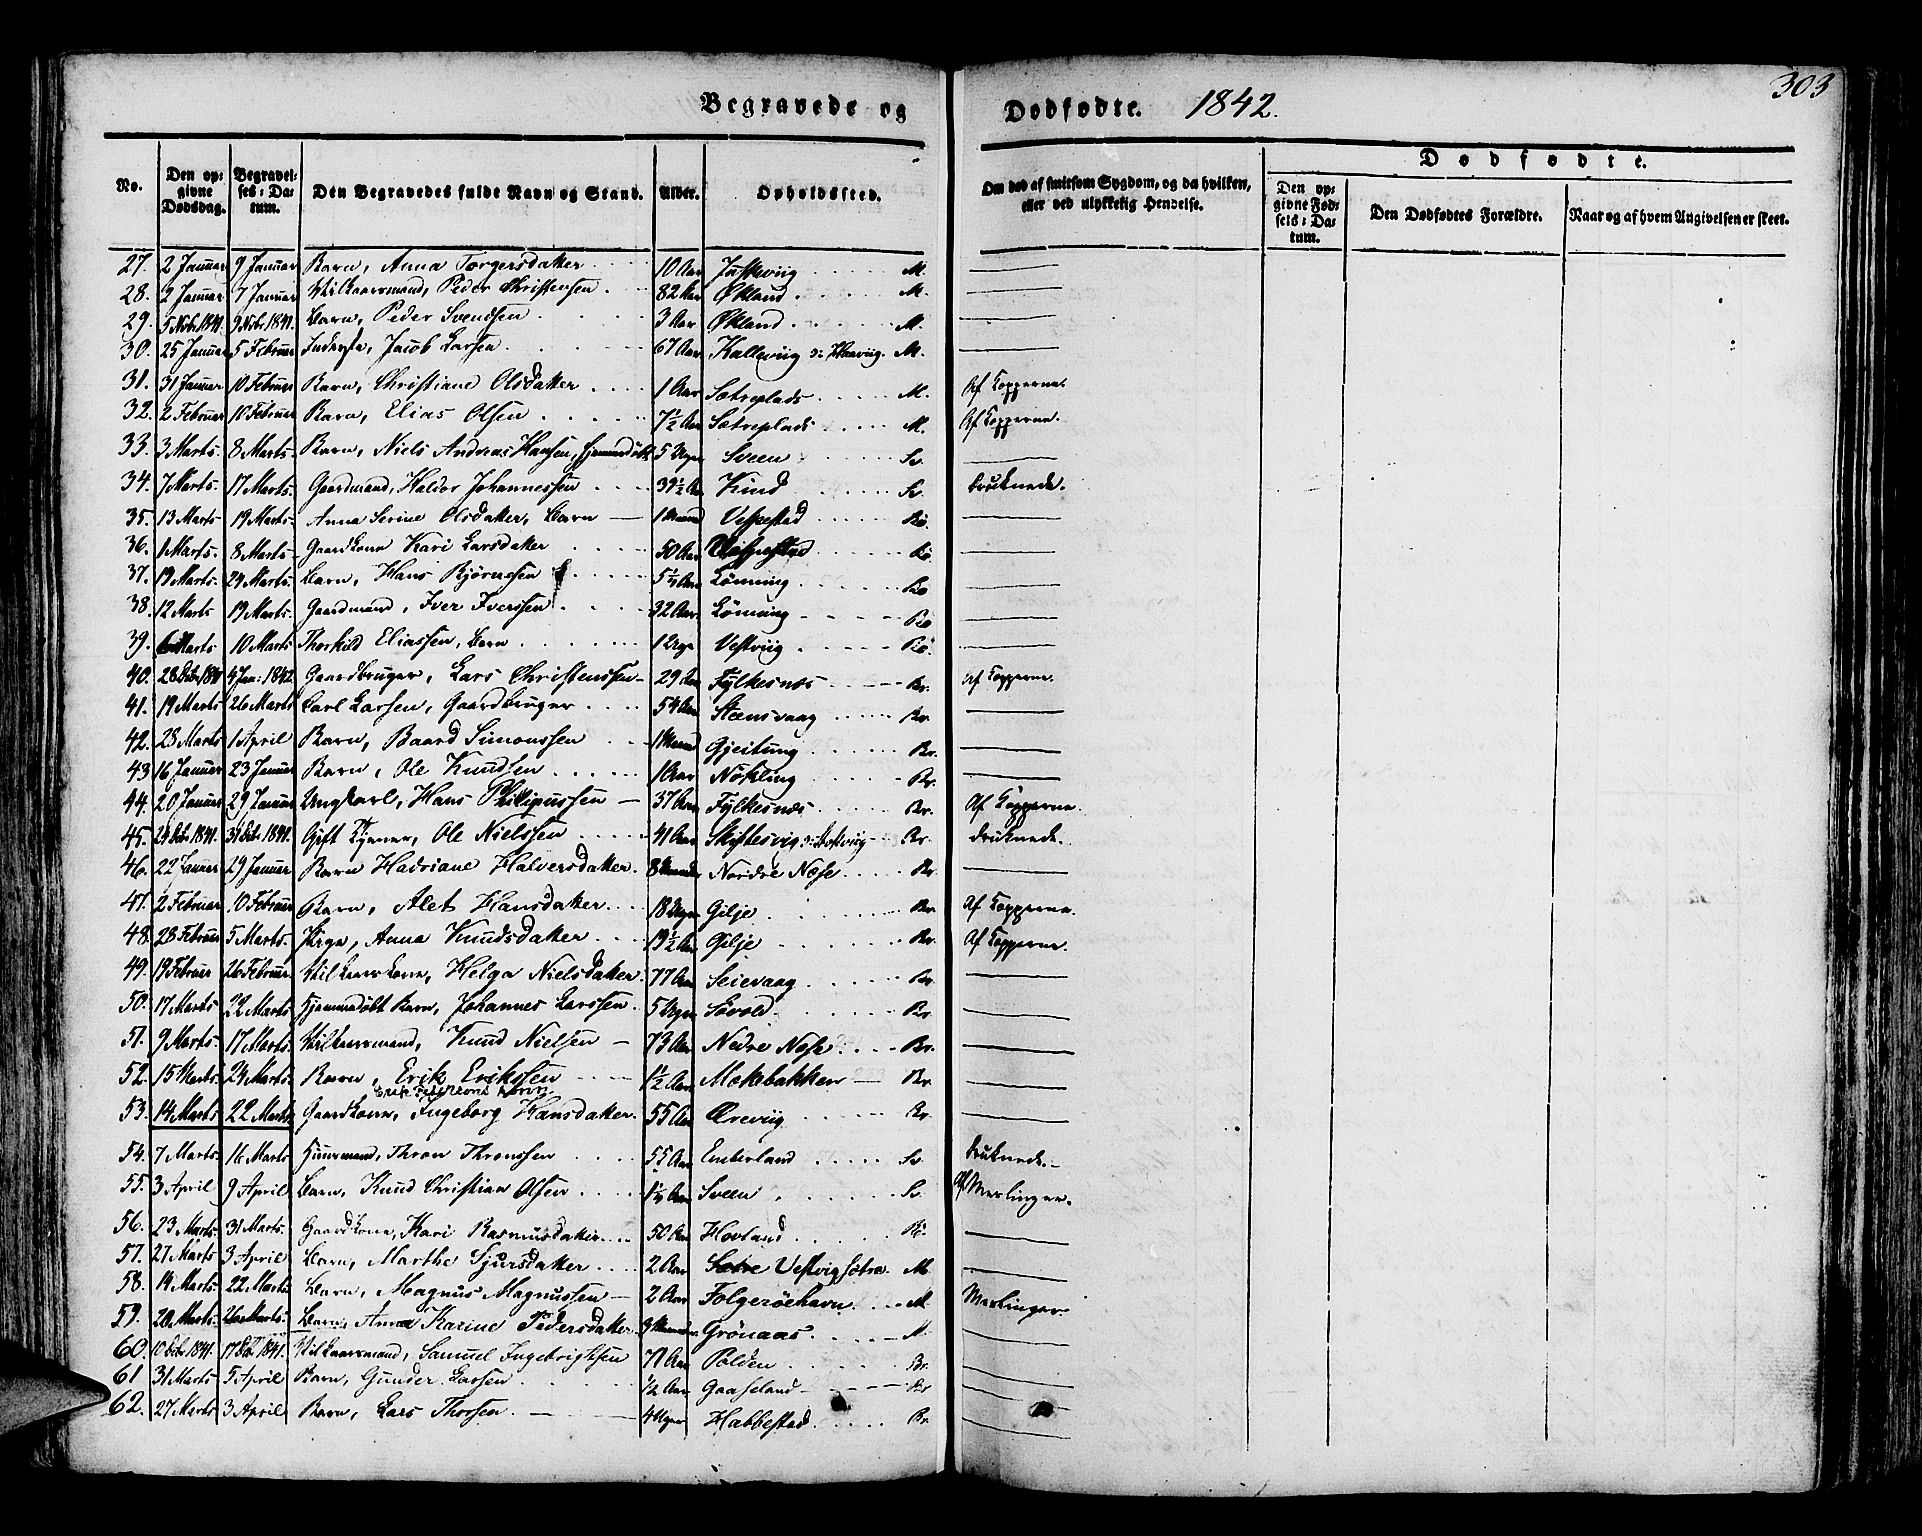 303
Begravede og Dødfødte. 1842.
No. Den opgivne Dødsdag. Begravelses-Datum. Den Begravedes fulde Navn og Stand. Alder. Opholdssted. Om død af smitsom Sygdom, og da hvilken, eller ved ulykkelig Hendelse. Dødfødte.
Den opgivne Fødsels-Datum. Den Dødfødtes Forældre. Naar og af hvem Angivelsen er skeet.
27. 2 Januar 9 Januar Barn, Anna Torgersdatter 10 Aar M.
28. 2 Januar 7 Januar Vilkaarsmand, Peder Christensen 82 Aar Økland M.
29. 5 Nobr 1841. 9 Nobr 1841. Barn, Peder Svendsen 3 Aar Økland M.
30. 25 Januar 5 Februar Inderste, Jacob Larsen 67 Aar Kallevig M.
31. 31 Januar 10 Februar Barn, Christiane Olsdatter 1 Aar Sætreplads M. Af Kopperne.
32. 2 Februar 10 Februar Barn, Elias Olsen 7½ Aar Sætreplads M. Af Kopperne.
33. 3 Marts. 8 Marts. Barn, Niels Andreas Hansen, hjemmedøbt 5 Uger Sveen Sv.
34. 7 Marts. 17 Marts. Gaardmand, Haldor Johannessen 39½ Aar Kind Sv. druknede.
35. 13 Marts 19 Marts. Anna Serine Olsdatter, Barn 1 Maaned Vespestad Bö.
36. 1 Marts. 8 Marts. Gaardkone Kari Larsdatter 50 Aar Vespestad Bö
37. 19 Marts. 24 Marts. Barn, Hans Bjørnssen Lönning Bö
38. 12 Marts 19 Marts. Gaardmand, Iver Iverssen 32 Aar Lönning Bö
39. 6 Marts 10 Marts Thorkild Eliassen, Barn 1 Uge Vestviig Bö.
40. 28 4 Jan: 1842. Gaardbruger, Lars Christenssen 29 Aar Fylkesnæs Br. Af Kopperne.
41. 19 Marts 26 Marts Carl Larsen, Gaardbruger 54 Aar Steensvaag Br.
42. 28 Marts 1 April Barn, Baard Simonssen 1 Maaned Gjeitung Br.
43 16 Januar 23 Januar Barn, Ole Knudsen 1 Aar Nökling Br.
44. 20 Januar 29 Januar Ungkarl, Hans Philipussen 37 Aar Fylkesnæs Br. Af Kopperne.
45. Gift Tjener, Ole Nielssen 41 Aar Skiftesvig Br. druknede.
46. 22 Januar 29 Januar Barn Hadriane Halversdatter. 8 Maaneder Nordre Næse Br.
47. 2 Februar 10 Februar Barn, Alet Hansdatter 18 Uger Gilje Br. Af Kopperne.
48. 28 Februar 5 Marts. Pige, Anna Knudsdatter 19½ Aar Gilje Br. Af Kopperne.
49. 19 Februar 26 Februar. Vilkaarskone, Helga Nielsdatter 77 Aar Seievaag Br.
50. 17 Marts 22 Marts hjemmedøbt Barn, Johannes Larssen 5 Uger Søvold Br.
51. 9 Marts. 17 Marts. Vilkaarsmand, Knud Nielsen 73 Aar Nedre Næse Br.
52. 15 Marts. 24 Marts. Barn, Erik Erikssen 1½ Aar Mækebakken Br.
53. 14 Marts 22 Marts Gaardkone, Ingeborg Hansdatter 55 Aar Ærevig Br.
54. 7 Marts. 16 Marts. Huusmand, Thron Thronssen 55 Aar Emberland Sv. druknede.
55. 3 April 9 April Barn, Knud Christian Olsen Sveen Sv. Af Meslinger.
56. 23 Marts. 31 Marts. Gaardkone, Kari Rasmusdatter 50 Aar Hovland Bö.
57. 27 Marts 3 April Barn, Marthe Sjursdatter 2 Aar Sætre Vestvigsötre. M.
58. 14 Marts. 22 Marts. Barn, Magnus Magnussen 2 Aar Folgeröehavn M. Meslinger
59. 20 Marts. 26 Marts. Barn, Anna Karine Pedersdatter 9 Maaneder Grönaas M.
60. Vilkaarsmand, Samuel Ingebrigtsen 71 Aar Polden Br.
61 31 Marts 5 April Barn, Gunder Larsen ½ Aar Gaaseland Br
62. 27 Marts 3 April Barn, Lars Thorsen 4 Uger Habbestad Br.